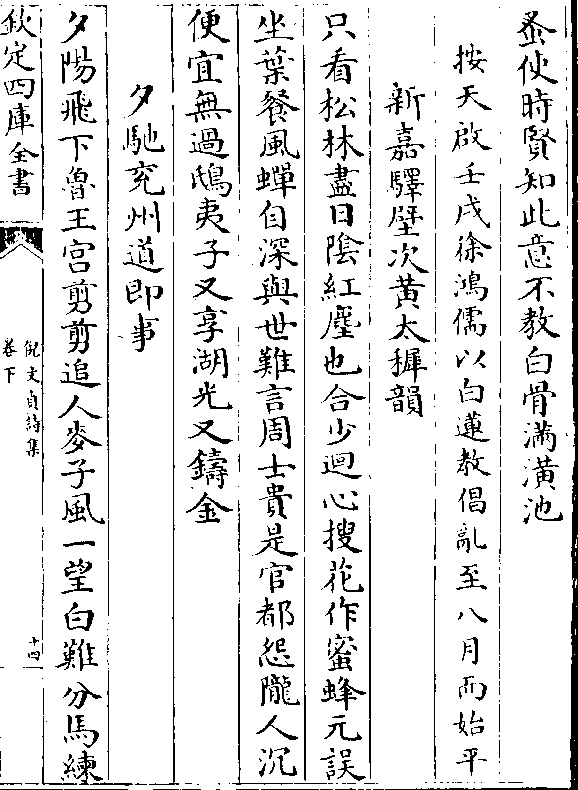 蚤使時賢知此意不教白骨滿潢池
按天啟壬戌徐鴻儒以白蓮教倡亂至八月而始平
新嘉驛壁次黃太穉韻
只看松林盡日陰紅塵也合少迴心搜花作蜜蜂元誤
坐葉餐風蟬自深與世難言周士貴是官都怨隴人沉
便宜無過鴟夷子又享湖光又鑄金
夕馳兖州道即事
夕陽飛下魯王宫剪剪追人麥子風一望白難分馬練
欽定四庫全書
倪文貞詩集
卷下
十四